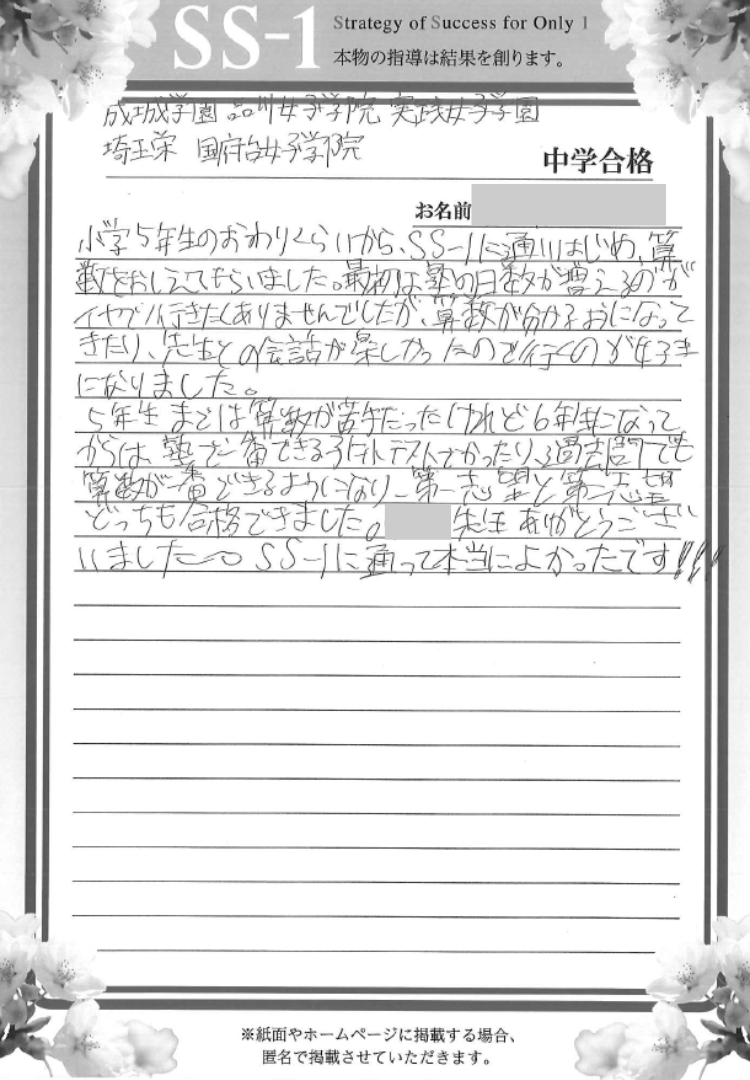 SS-1
Strategy of Success for Only 1
本物の指導は結果を創ります。
成城学園 品川女子学院 実践女子学園
埼玉栄 国府台女子学院
中学合格
お名前
小学5年生のおわりくらいから、SS-1に通いはじめ、算
数をおしえてもらいました。最初は塾の日数が増えるのが
イヤで行きたくありませんでしたが、算数が分かるおになって
きたり、先生との会話が楽しかったので行くのが好き
になりました。
5年生までは算数が苦手だったけれど6年生になって
からは、塾で一番できる テストでかったり、過去問でも
算数が一番できるようになり、第一志望と第二志望
どっちも合格できました。 先生ありがとうござ
いました〜。SS-1に通って本当によかったです!!!
※紙面やホームページに掲載する場合、
匿名で掲載させていただきます。